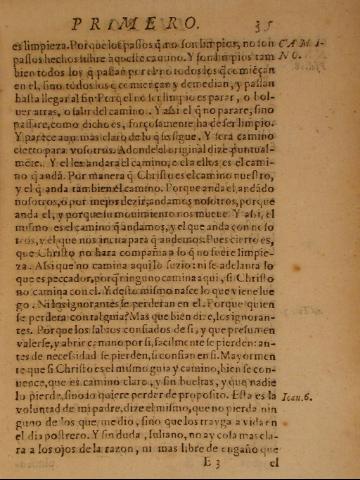 PRIMERO. 35
es limpieza. Porque los passos q̃ no son limpios, no son
CAMI-
passos hechos sobre aqueste camino. Y son limpios tam
NO.
bien todos los q̃ passan por el: no todos los q̃ comiẽçan
en el, sino todos los q̃ comiençan y demedian, y passan
hasta llegar al fin: Porq̃ el no ser limpio es parar, o bol-
uer atras, o salir del camino. Y assi el q̃ no parare, sino
passare, como dicho es, forçosamente ha de ser limpio.
Y parece aun mas claro de lo q̃ se sigue. Y sera camino
cierto para vosotros. Adonde el original dize puntual-
mẽte. Y el les andara el camino, o el a ellos es el cami-
no q̃ andã. Por manera q̃ Christo es el camino nuestro,
y el q̃ anda tambien el camino. Porque anda el, andãdo
nosotros, o por mejor dezir, andamos nosotros, porque
anda el, y porque su mouimiento nos mueue. Y assi, el
mismo es el camino q̃ andamos, y el que anda con noso
tros, y el que nos incita para q̃ andemos. Pues cierto es,
que Christo no hara compañia a lo q̃ no fuere limpie-
za. Assi que no camina aqui lo suzio: ni se adelanta lo
que es peccador, porq̃ ninguno camina aqui, si Christo
no camina con el. Y desto mismo nasce lo que viene lue
go. Ni los ignorantes se perderan en el. Porque quien
se perdera con tal guia? Mas que bien dize, los ignoran-
tes. Porque los sabios confiados de si, y que presumen
valerse, y abrir camino por si, facilmente se pierden: an-
tes de necessidad se pierden, si confian en si. Mayormen
te que si Christo es el mismo guia y camino, bien se con-
uence, que es camino claro, y sin bueltas, y que nadie
lo pierde, sino lo quiere perder de proposito. Esta es la
Ioan. 6.
voluntad de mi padre, dize el mismo, que no pierda nin
guno de los que me dio, sino que los trayga a vida en
el dia postrero. Y sin duda, Iuliano, no ay cosa mas cla-
ra a los ojos de la razon, ni mas libre de engaño que
E 3 el